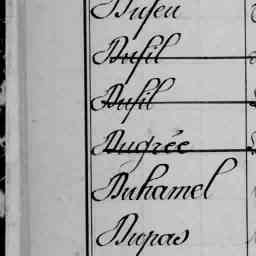 Dufeu
Dufil
Dufil
Dugrée
Duhamel
Dupas